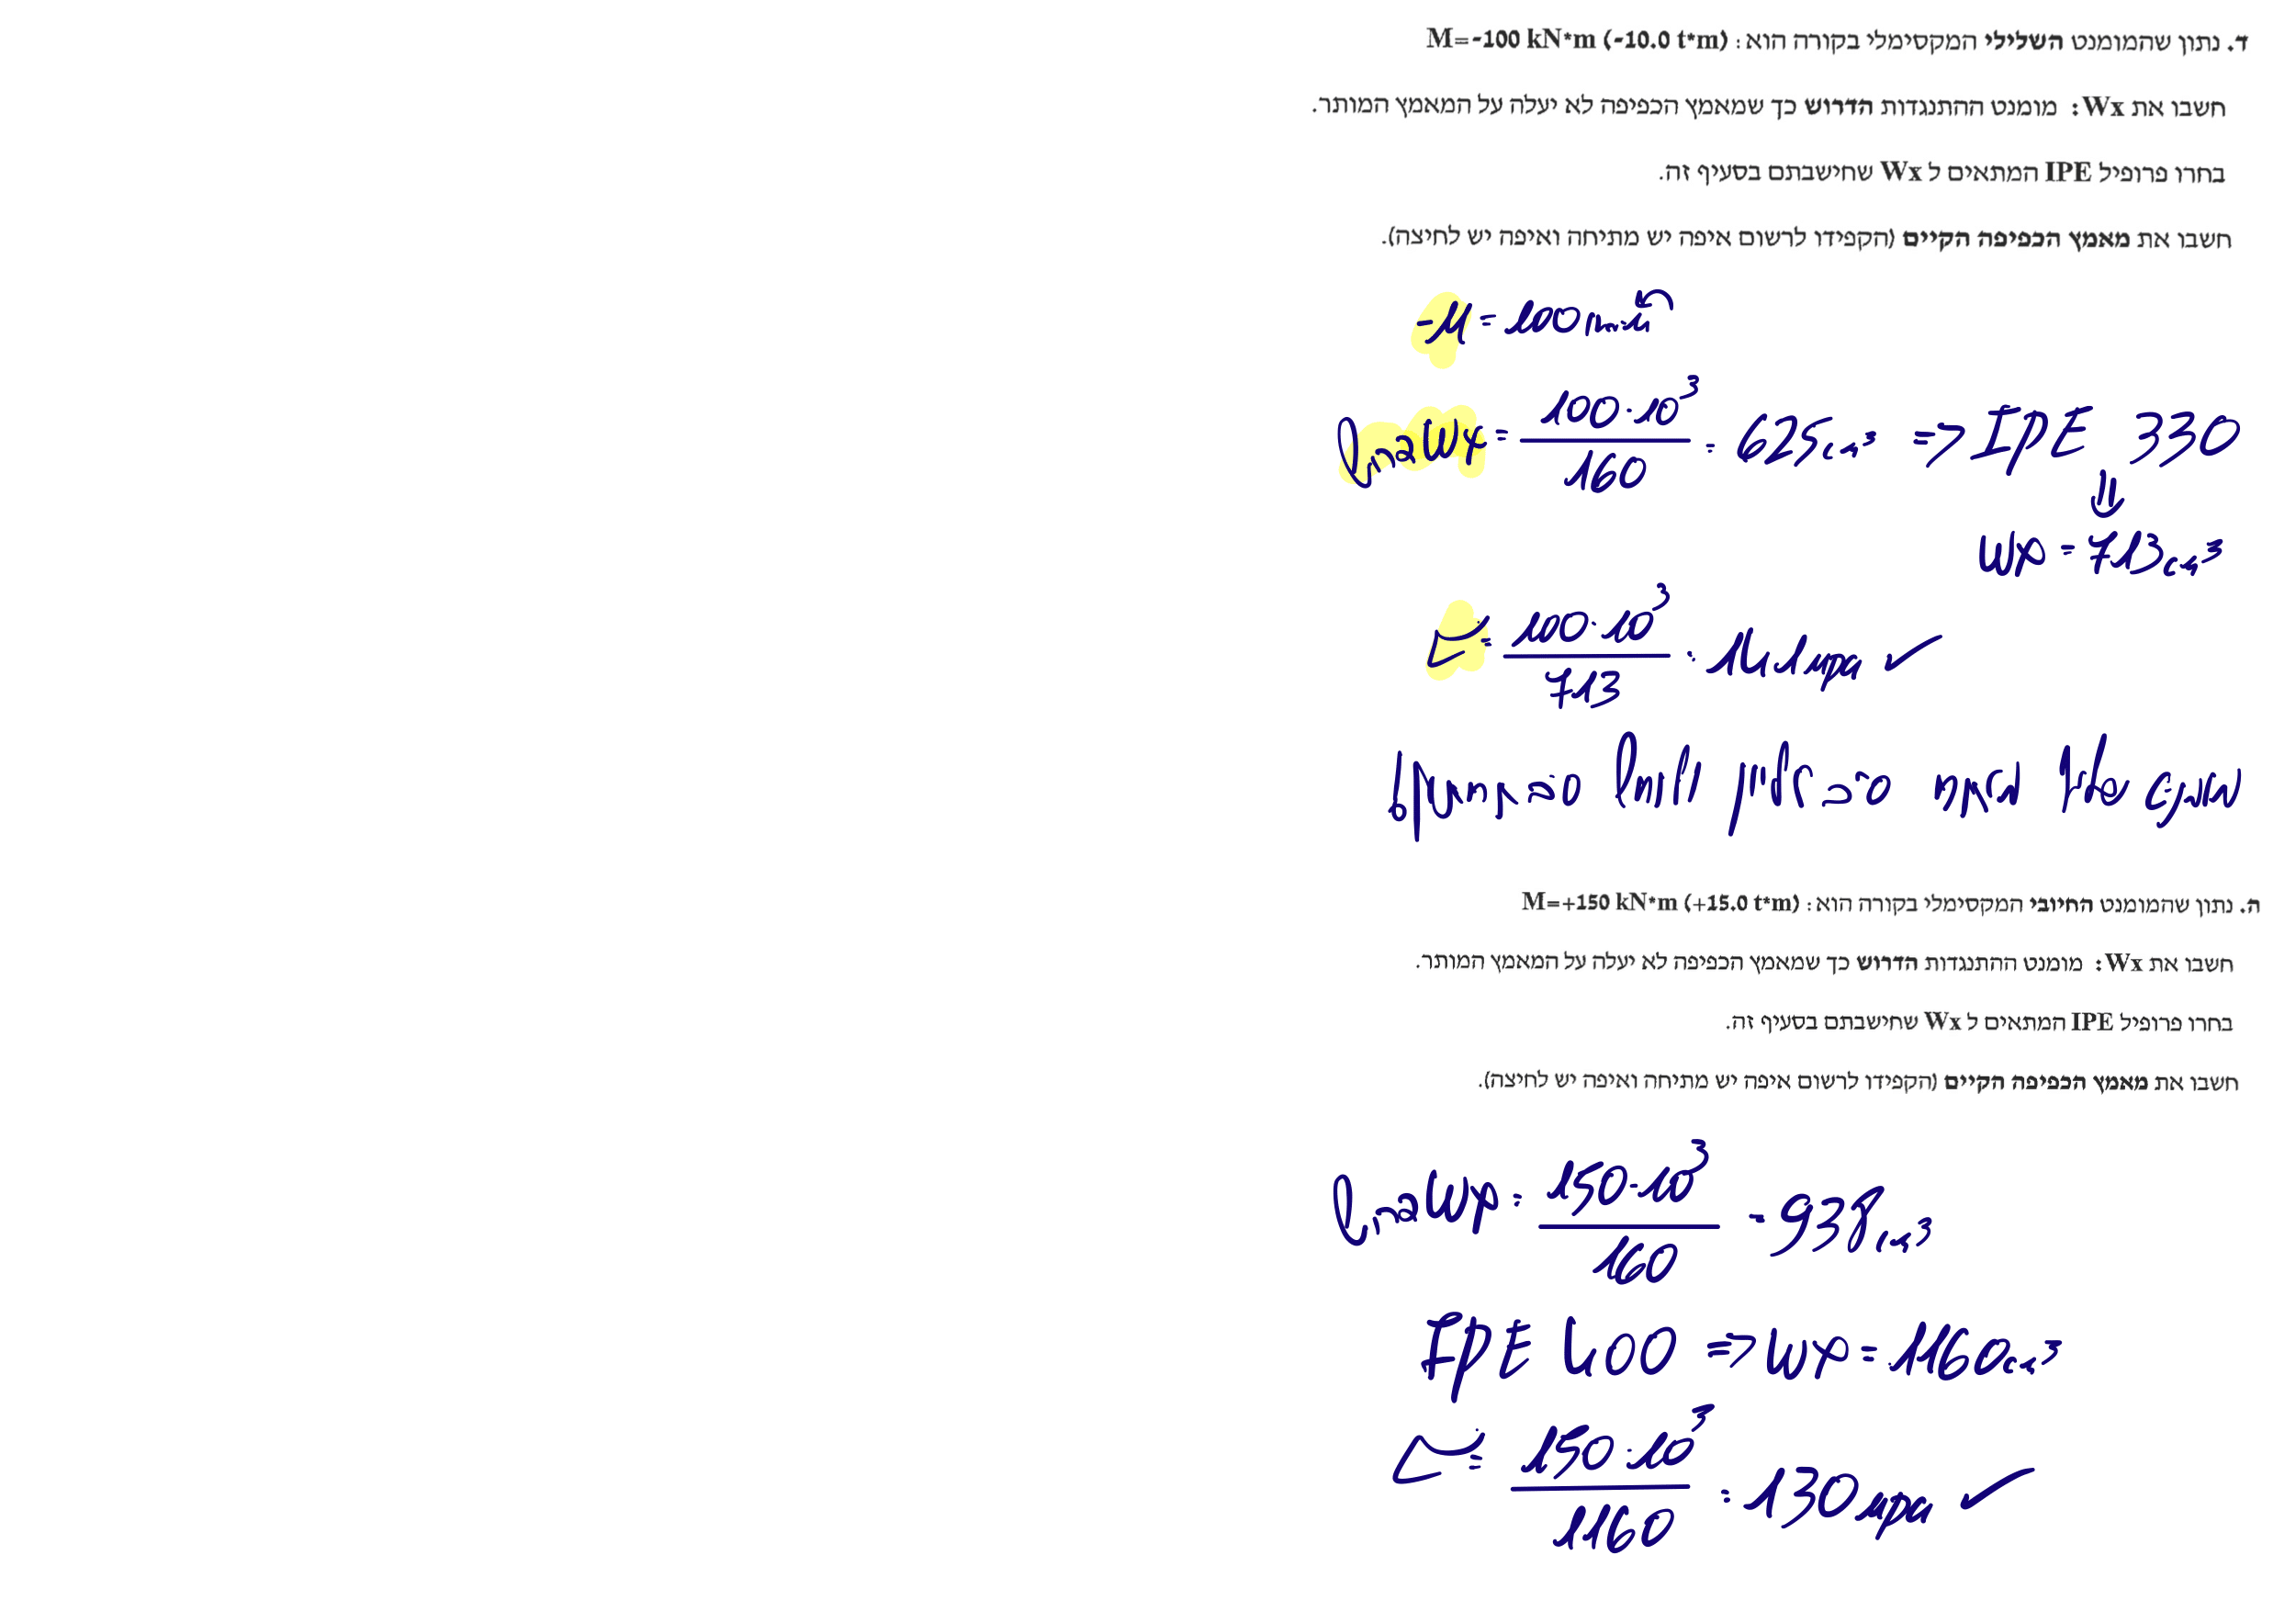 ד. נתון שהמומנט השלילי המקסימלי בקורה הוא: M=-100 kN*m (-10.0 t*m)
חשבו את Wx: מומנט ההתנגדות הדרוש כך שמאמץ הכפיפה לא יעלה על המאמץ המותר.
בחרו פרופיל IPE המתאים ל Wx שחישבתם בסעיף זה.
חשבו את מאמץ הכפיפה הקיים (הקפידו לרשום איפה יש מתיחה ואיפה יש לחיצה).
-M = 100
Wx = 100·10³ / 160 = 625 cm³ => IPE 330
Wx = 713 cm³
= 100·10³ / 713 = 141 MPa ✓
מומנט שלילי סיב עליון סיב תחתון
ה. נתון שהמומנט החיובי המקסימלי בקורה הוא: M=+150 kN*m (+15.0 t*m)
חשבו את Wx: מומנט ההתנגדות הדרוש כך שמאמץ הכפיפה לא יעלה על המאמץ המותר.
בחרו פרופיל IPE המתאים ל Wx שחישבתם בסעיף זה.
חשבו את מאמץ הכפיפה הקיים (הקפידו לרשום איפה יש מתיחה ואיפה יש לחיצה).
Wx = 150·10³ / 160 = 938 cm³
IPE 400 => Wx = 1160 cm³
= 150·10³ / 1160 = 130 MPa ✓